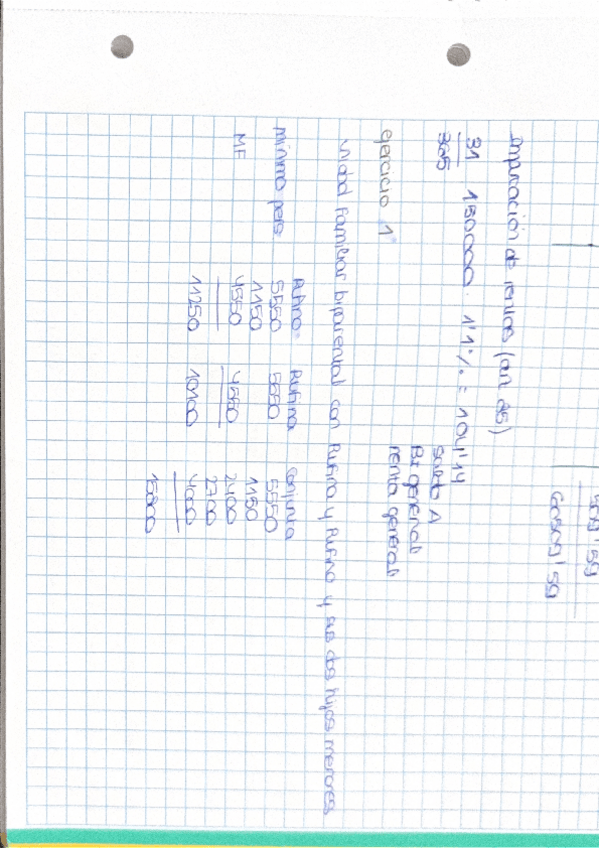 509'59
60509'59
Imputación de rentas (art 85)
31/365 · 150000 · 1'1% = 104'14
Saldo A
BI general
renta general
ejercicio 1º
Unidad familiar biparental con Rufina y Rufino y sus dos hijos menores
Rufino Rufina Conjunta
mínimo pers 5550 5550 5550
1150 1150
MF 4550 4550 2400
2700
11250 10100 4000
15800